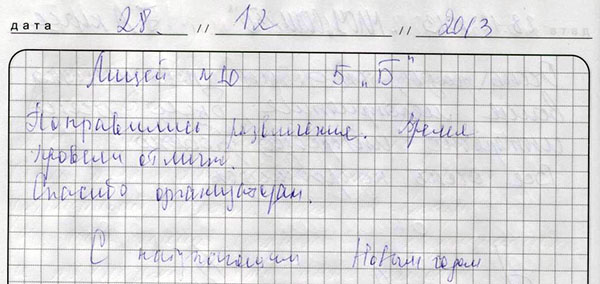 дата 28. // 12 // 2013
Лицей №10 5 „Б"
Понравились развлечения. Время
провели отлично.
Спасибо организаторам.
С наступающим Новым годом